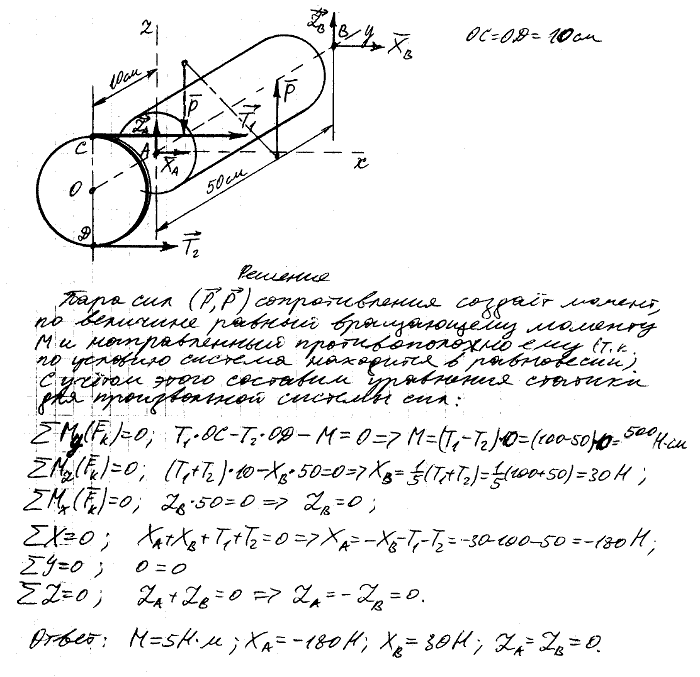 OC=OD=10см
z
Z̄_B B y X̄_B
10см
P̄ P̄
Z̄_A T̄₁
C A X̄_A x
O 50см
D T̄₂
Решение
Пара сил (P̄, P̄) сопротивления создаёт момент,
по величине равный вращающему моменту
M и направленный противоположно ему (т.к.
по условию система находится в равновесии).
С учётом этого составим уравнения статики
для произвольной системы сил:
ΣM_y(F̄_k)=0; T₁·OC-T₂·OD-M=0=>M=(T₁-T₂)·10=(100-50)·10=500Н·см
ΣM_z(F̄_k)=0; (T₁+T₂)·10-X_B·50=0=>X_B=1/5(T₁+T₂)=1/5(100+50)=30Н;
ΣM_x(F̄_k)=0; Z_B·50=0=>Z_B=0;
ΣX=0; X_A+X_B+T₁+T₂=0=>X_A=-X_B-T₁-T₂=-30-100-50=-180Н;
ΣY=0; 0=0
ΣZ=0; Z_A+Z_B=0=>Z_A=-Z_B=0.
Ответ: M=5Н·м; X_A=-180Н; X_B=30Н; Z_A=Z_B=0.